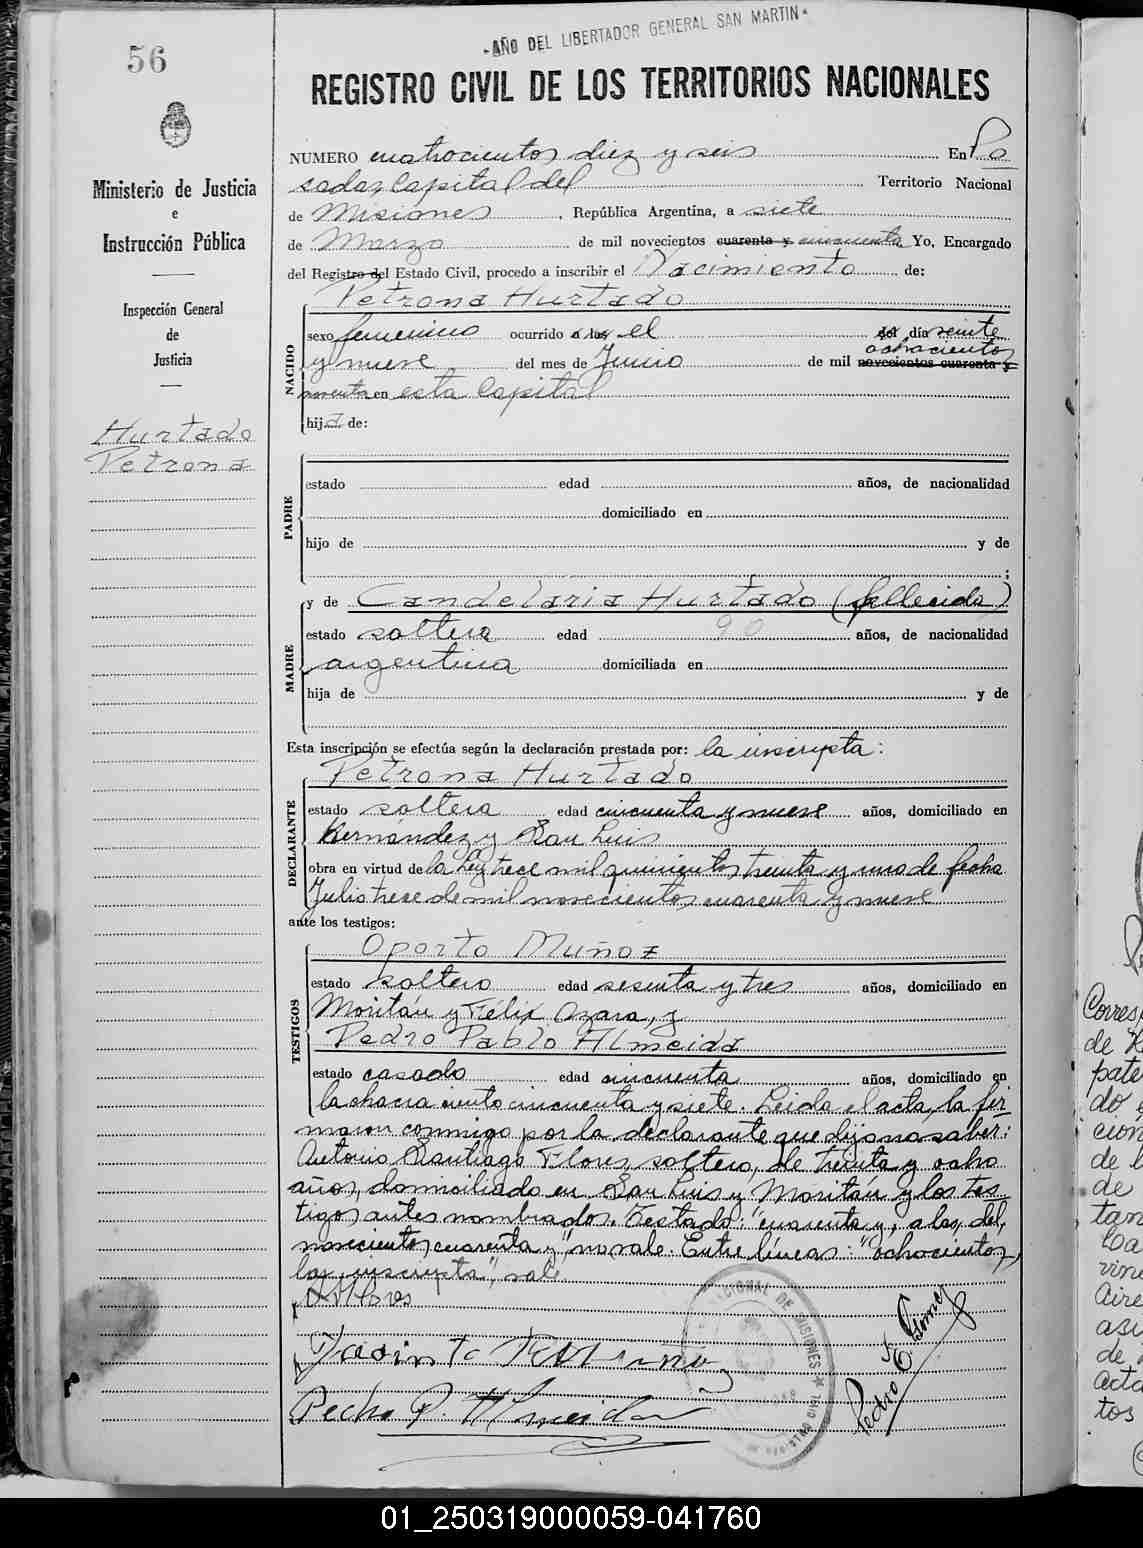 56
-AÑO DEL LIBERTADOR GENERAL SAN MARTIN-
REGISTRO CIVIL DE LOS TERRITORIOS NACIONALES
Ministerio de Justicia
e
Instrucción Pública
Inspección General
de
Justicia
Hurtado
Petrona
NUMERO cuatrocientos diez y seis En Po
sadas, Capital del Territorio Nacional
de Misiones, República Argentina, a siete
de Marzo de mil novecientos cuarenta y cincuenta Yo, Encargado
del Registro del Estado Civil, procedo a inscribir el Nacimiento de:
Petrona Hurtado
NACIDO
sexo femenino ocurrido a las el del día veinte
ochocientos
y nueve del mes de Junio de mil novecientos cuarenta y
noventa en esta Capital
hija de:
PADRE
estado edad años, de nacionalidad
domiciliado en
hijo de y de
;
MADRE
y de Candelaria Hurtado (fallecida)
estado soltera edad 90 años, de nacionalidad
argentina domiciliada en
hija de y de
Esta inscripción se efectúa según la declaración prestada por: la inscripta:
Petrona Hurtado
DECLARANTE
estado soltera edad cincuenta y nueve años, domiciliado en
Hernández y San Luis
obra en virtud de la Ley trece mil quinientos treinta y uno de fecha
Julio trece de mil novecientos cuarenta y nueve
ante los testigos:
TESTIGOS
Oporto Muñoz
estado soltero edad sesenta y tres años, domiciliado en
Moritán y Félix Azara, y
Pedro Pablo Almeida
estado casado edad cincuenta años, domiciliado en
la chacra ciento cincuenta y siete. Leida el acta, la fir
maron conmigo por la declarante que dijo no saber:
Antonio Santiago Flores, soltero, de treinta y ocho
años, domiciliado en San Luis y Moritán y los tes
tigos antes nombrados. Testado: "cuarenta y, a las, del,
novecientos cuarenta y" no vale. Entre líneas: "ochocientos,
la inscripta", vale
Pedro P. Almeida
Pedro E. Gómez
NACIONAL DE MISIONES
REGISTRO CIVIL
Corres
de
pate
do
cion
de
de
tan
vin
Aire
de
acta
tos
01_250319000059-041760